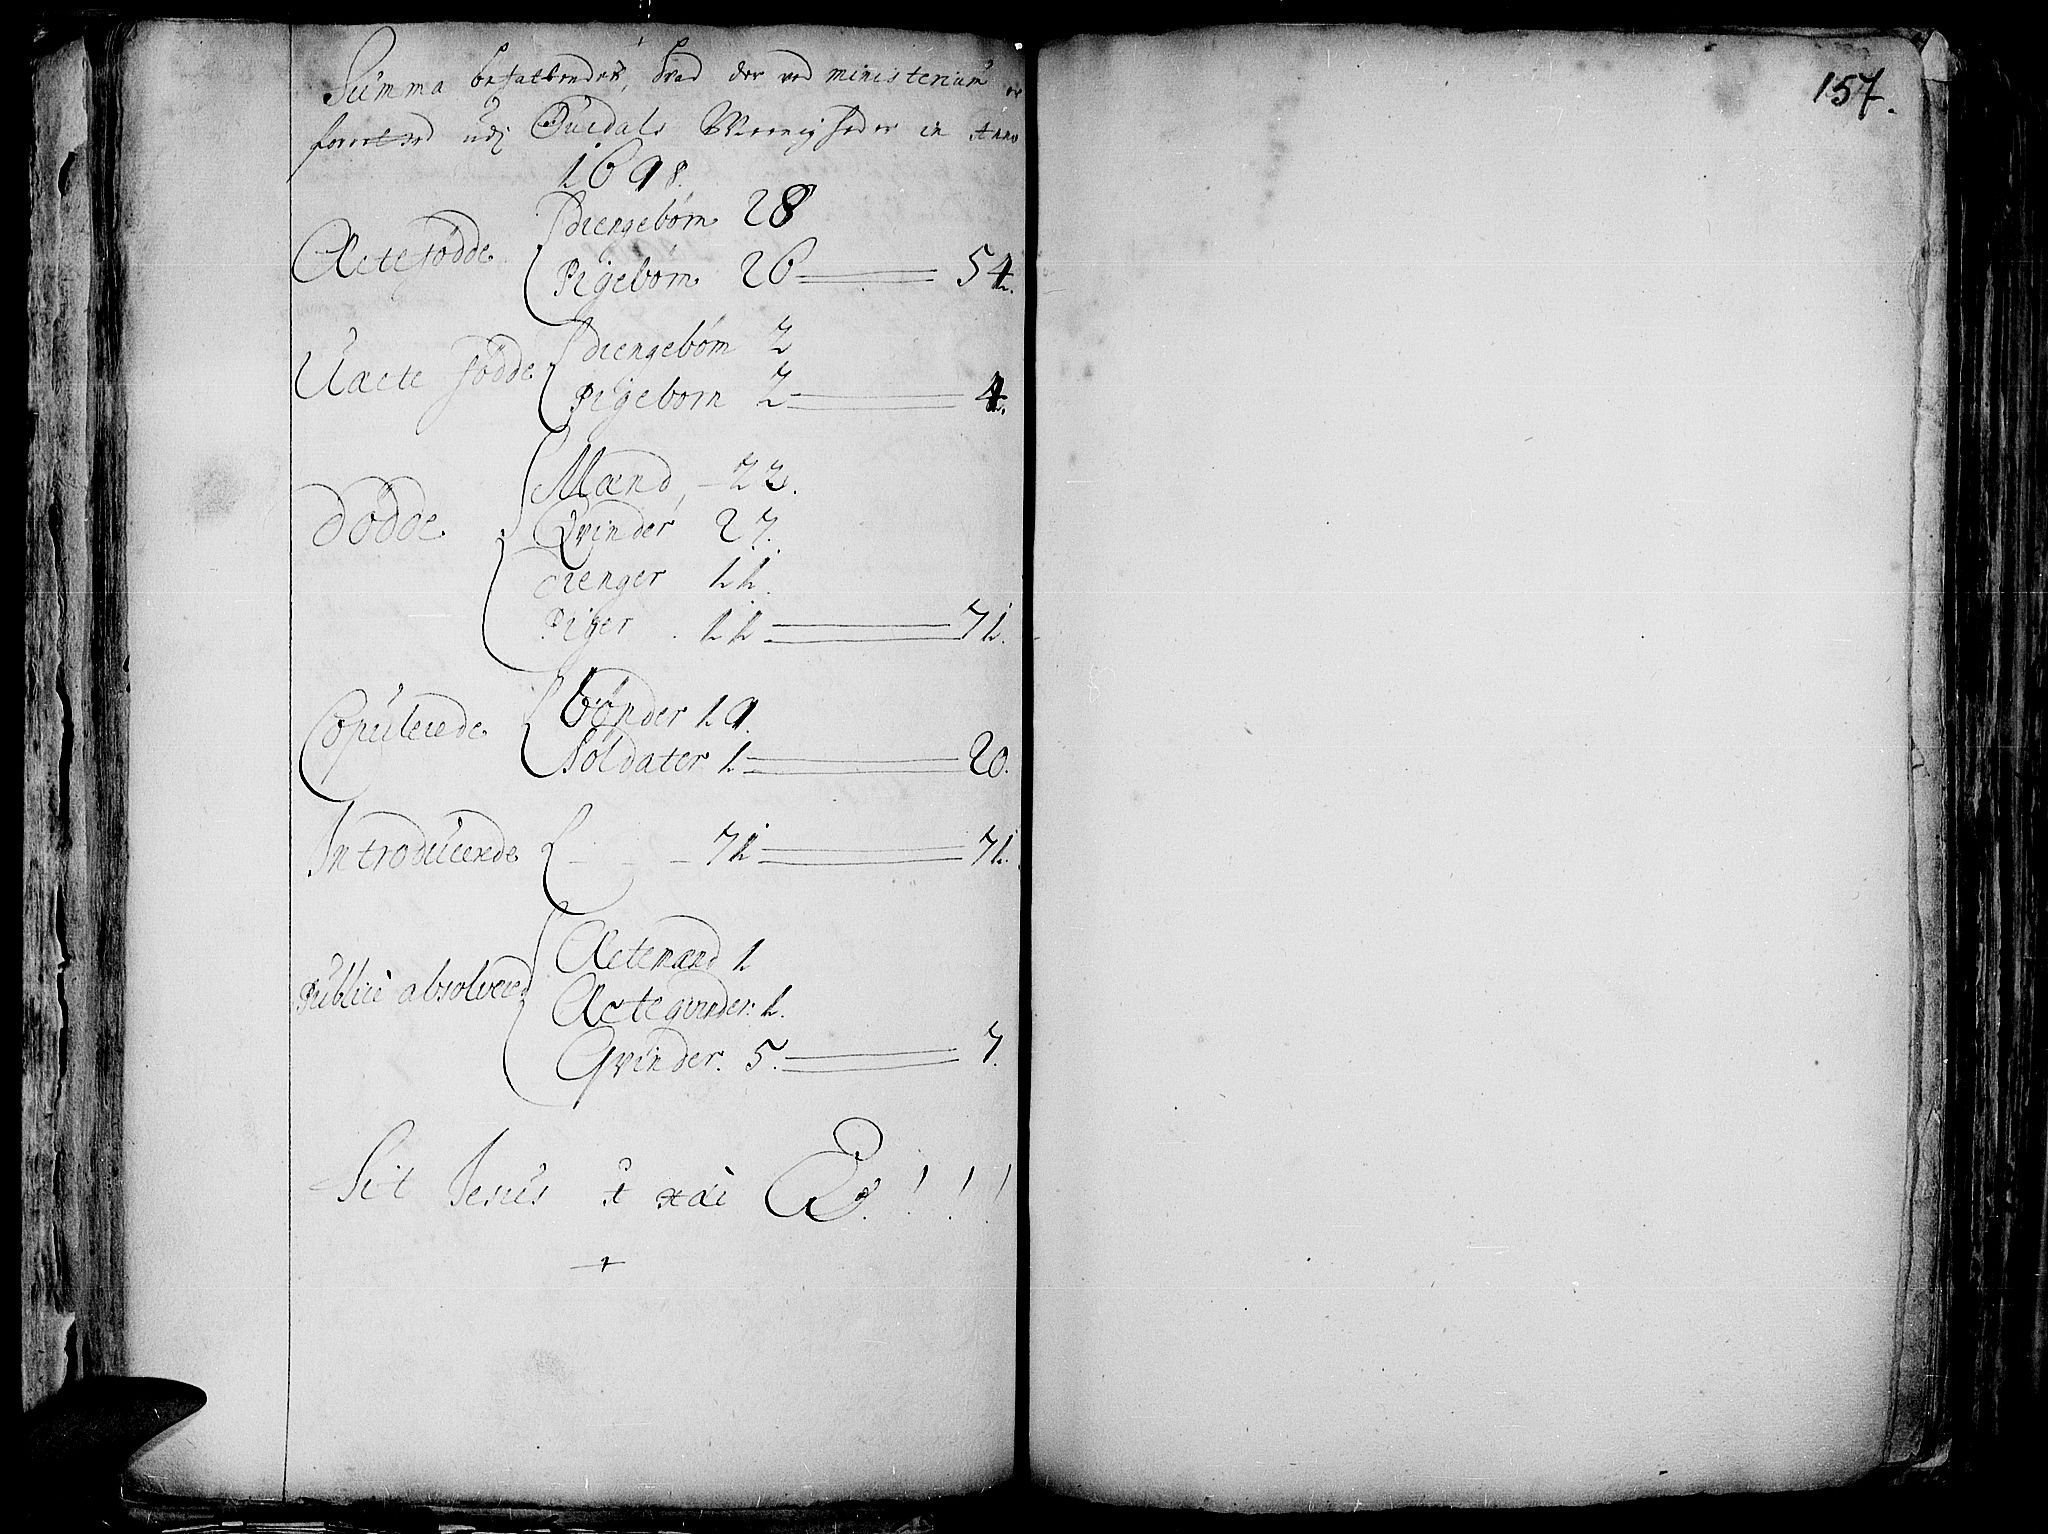 Summa befatbendes, hvad der ved ministerium er
forretted udj Øuerdals Meenigheder in Anno
1698.
Ectefødde
Drengebørn 28
Pigebørn 26 54.
Uæcte fødde
Drengebørn 2
Pigebørn 2 4.
Dødde
Mænd, 22.
Qvinder 27.
Drenger 11.
Piger 11 71.
Copulerede
bønder 19.
Soldater 1 20.
Introducerede 71 71.
Publicè absolvered
Ectemænd 1
Ecte qvinder: 1.
Qvinder. 5. 7.
Sit Jesus
157.